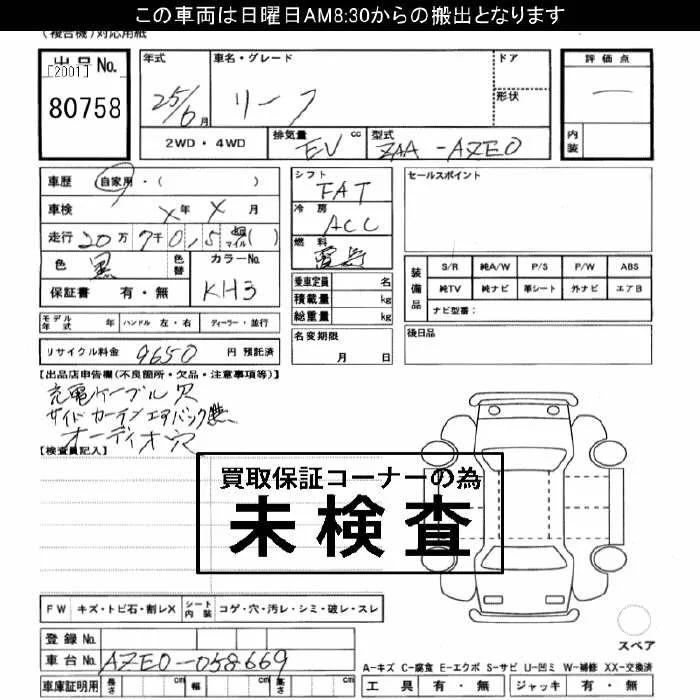 この車両は日曜日AM8:30からの搬出となります
(複合機)対応用紙
出品No. [2001] 80758
年式 25/6月
車名・グレード リーフ
ドア
形状
評価点 ー
内装
2WD・4WD 排気量 EV cc 型式 ZAA-AZE0
車歴 自家用・( )
車検 X年 X月
走行 20万 7千 0,15 マイル( )
色 黒 色替 カラーNo. KH3
保証書 有・無
シフト FAT
冷房 ACC
燃料 電気
乗車定員 名
積載量 kg
総重量 kg
名変期限 月 日
セールスポイント
装備品 S/R 純A/W P/S P/W ABS
純TV 純ナビ 革シート 外ナビ エアB
ナビ型番:
後日品
モデル年式 年 ハンドル 左・右 ディーラー・並行
リサイクル料金 9650 円 預託済
【出品店申告欄(不良箇所・欠品・注意事項等)】
充電ケーブル欠
サイドカーテンエアバック無
オーディオ穴
【検査員記入】
買取保証コーナーの為
未検査
FW キズ・トビ石・割レX シート内装 コゲ・穴・汚レ・シミ・破レ・スレ
登録No.
車台No. AZE0-058669
車庫証明用 長さ cm 幅 cm 高さ cm
スペア
A-キズ C-腐食 E-エクボ S-サビ U-凹ミ W-補修 XX-交換済
工具 有・無 ジャッキ 有・無